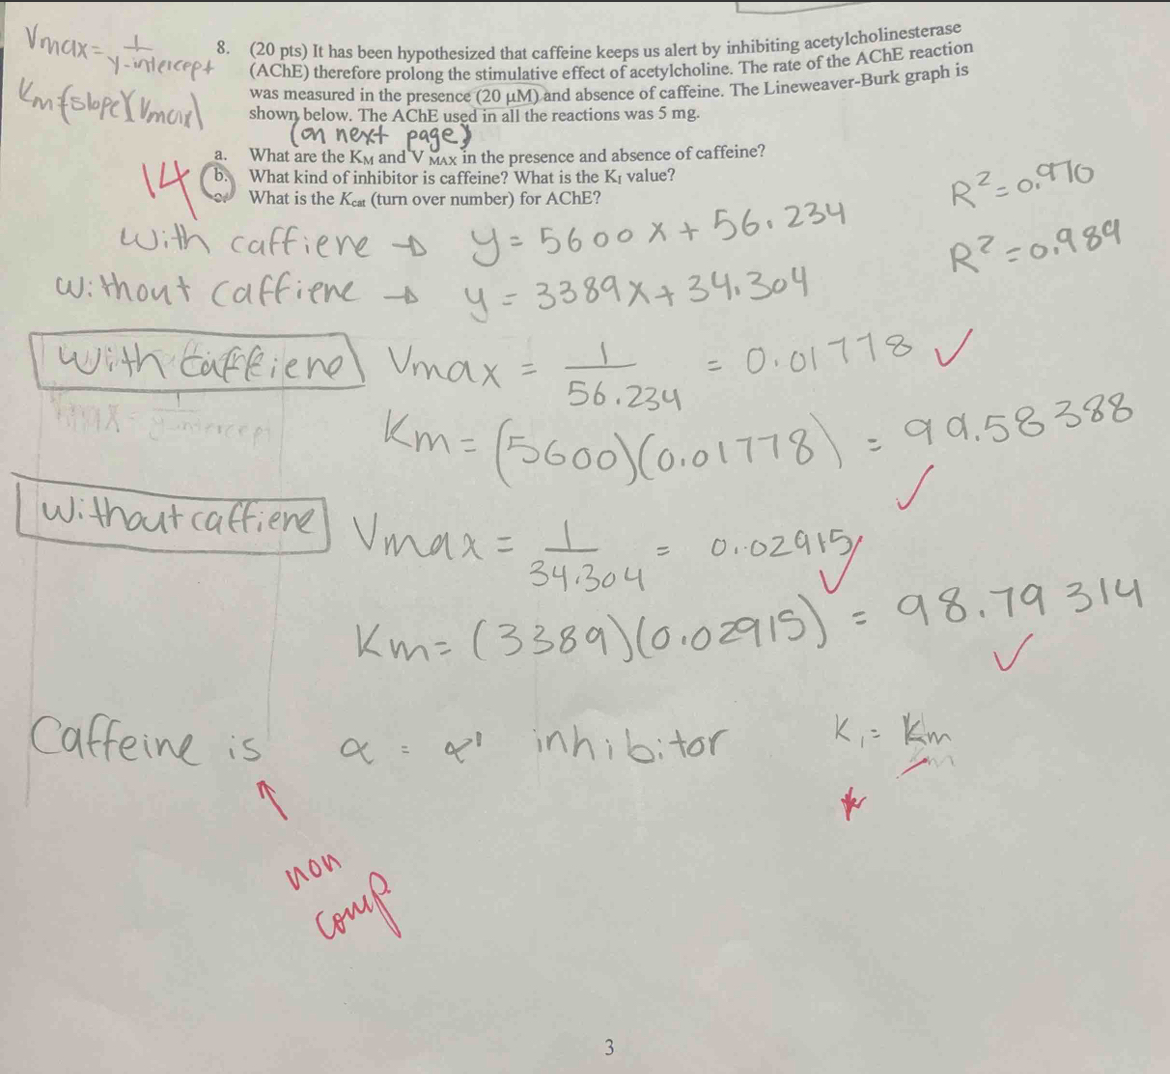 Vmax = 1/y-intercept
Km (slope)(Vmax)
8. (20 pts) It has been hypothesized that caffeine keeps us alert by inhibiting acetylcholinesterase
(AChE) therefore prolong the stimulative effect of acetylcholine. The rate of the AChE reaction
was measured in the presence (20 µM) and absence of caffeine. The Lineweaver-Burk graph is
shown below. The AChE used in all the reactions was 5 mg.
(on next page)
a. What are the KM and V MAX in the presence and absence of caffeine?
14
b. What kind of inhibitor is caffeine? What is the KI value?
c. What is the Kcat (turn over number) for AChE?
With caffiene → y = 5600x + 56.234 R² = 0.970
without caffiene → y = 3389x + 34.304 R² = 0.989
With caffiene Vmax = 1/56.234 = 0.01778 ✓
Vmax = 1/y-intercept
Km = (5600)(0.01778) = 99.58388 ✓
without caffiene Vmax = 1/34.304 = 0.02915 ✓
Km = (3389)(0.02915) = 98.79314 ✓
Caffeine is α = α' inhibitor K₁ = Km
non
comp.
3